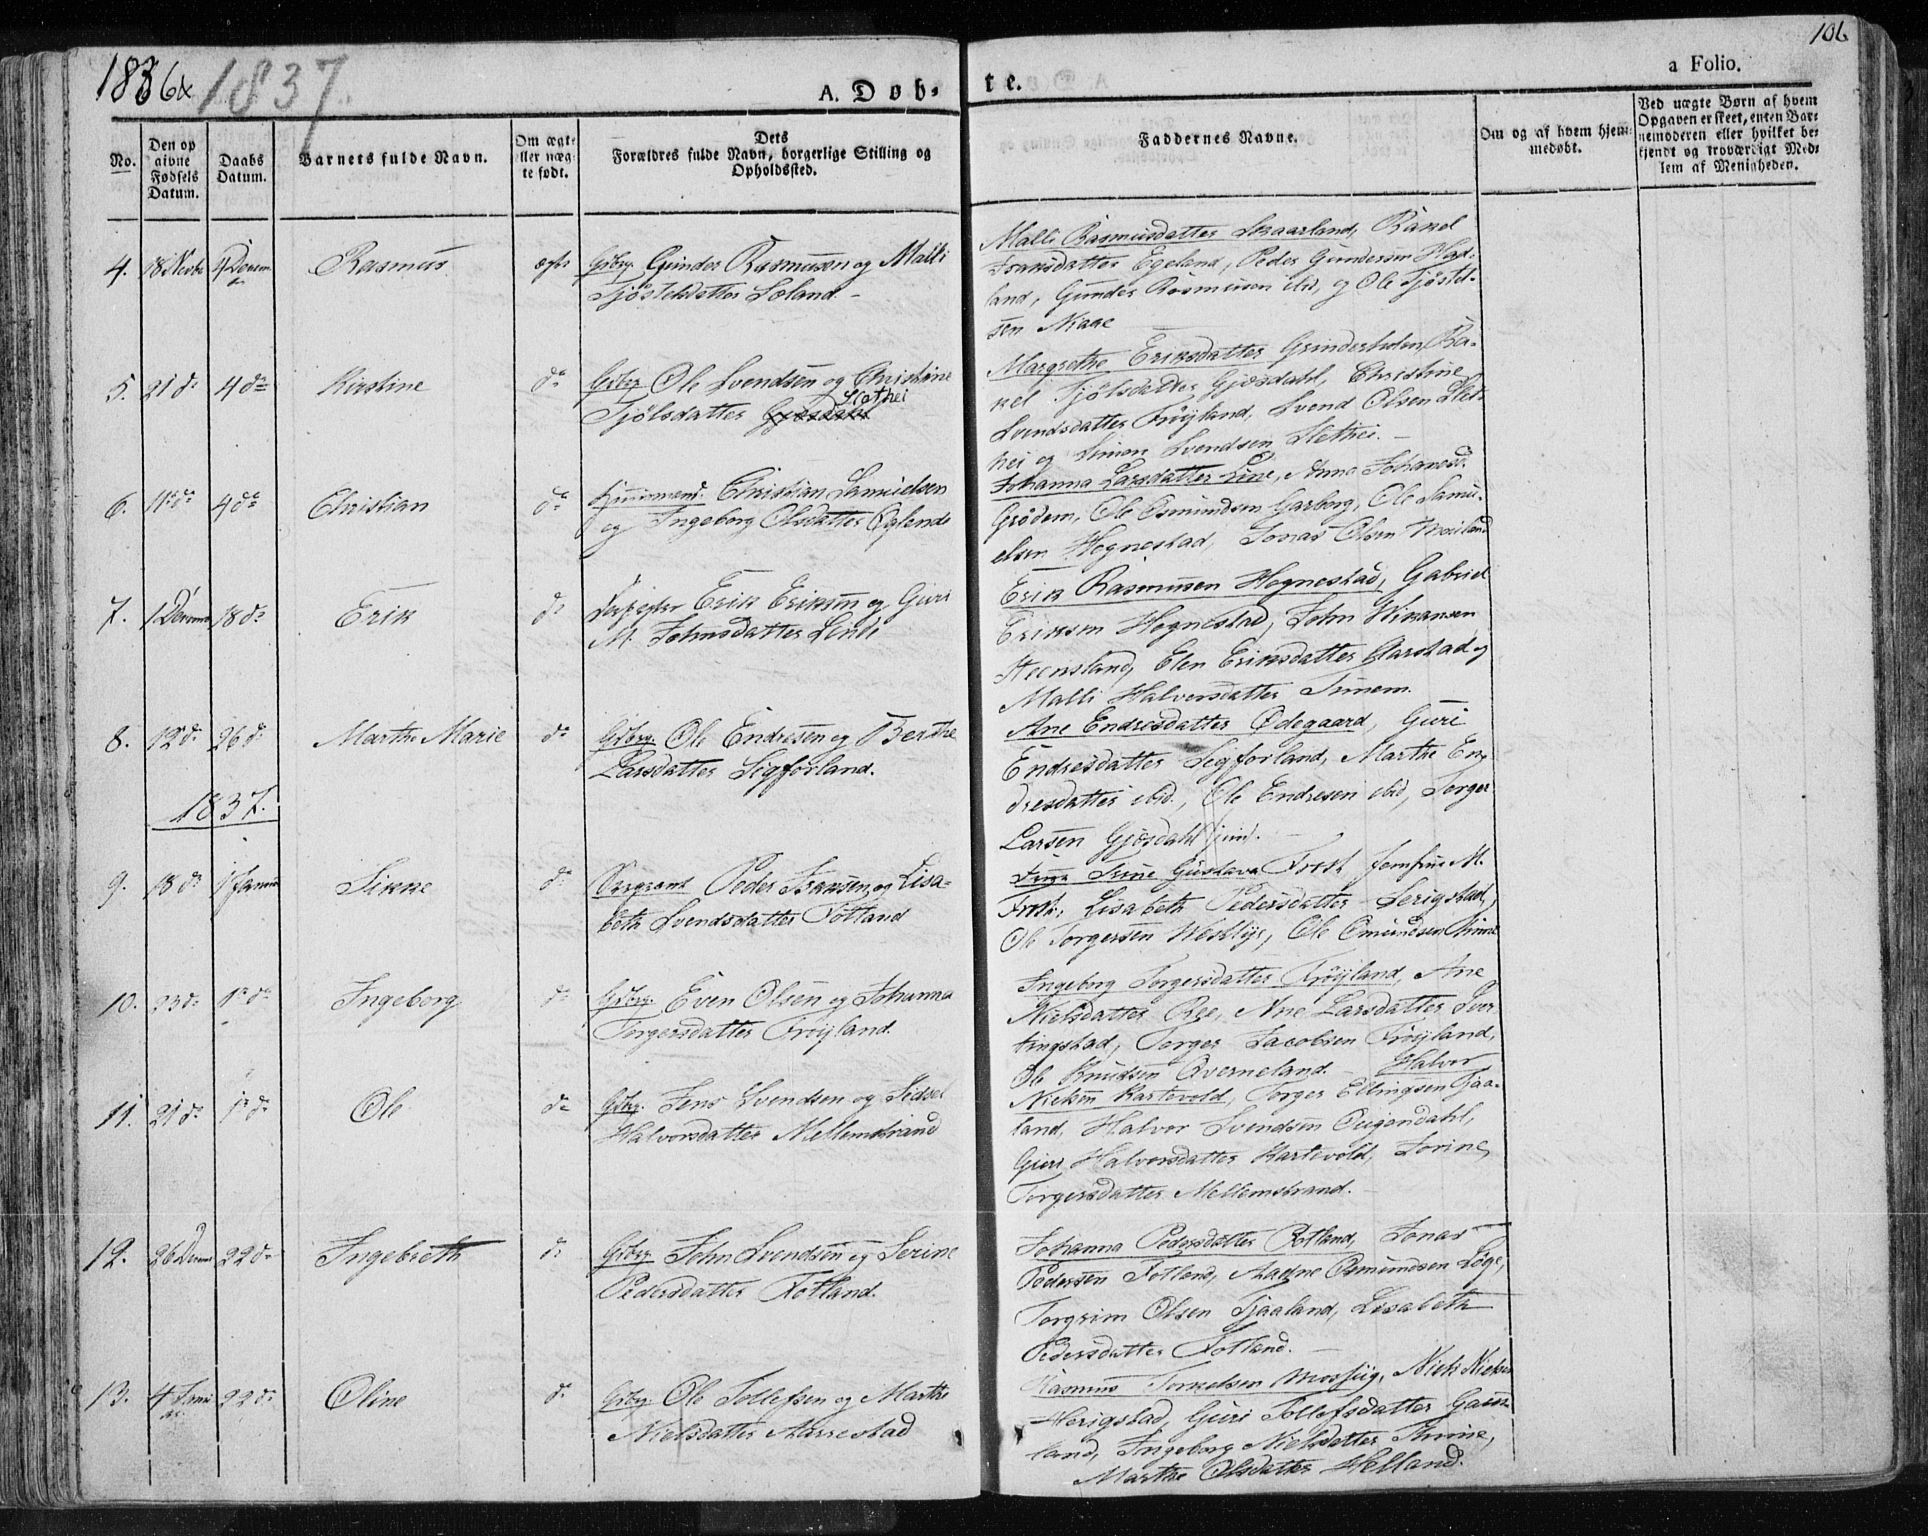 1836 & 1837.
106
A. Døb-
te.
a Folio.
No.
Den op
givne
Fødsels
Datum.
Daabs
Datum.
Barnets fulde Navn.
Om ægte
eller uæg-
te født.
Dets
Forældres fulde Navn, borgerlige Stilling og
Opholdssted.
Faddernes Navne.
Om og af hvem hjem-
medøbt.
Ved uægte Børn af hvem
Opgaven er skeet, enten Bar-
nemoderen eller hvilket be-
kjendt og troværdigt Med-
lem af Menigheden.
4. 18 Novbr 4 Decem. Rasmus ægte Gdbrg. Gunder Rasmusen og Malli
Tjöstelsdatter Loland.
Malli Rasmusdatter Skaarland, Rakel
Fransdatter Egeland, Peder Gundersen Hod-
land, Gunder Rasmusen ibd, og Ole Tjöstel-
sen Niaae
5. 21 do 4 do Kirstine do Gdbrg Ole Svendsen og Christine
Slethei
Tjölsdatter Gjesdahl
Margrethe Eriksdatter Grinderheien, Ra-
kel Tjölsdatter Gjesdahl, Christine
Svendsdatter Fröyland, Svend Olsen Slet-
hei og Simon Svendsen Slethei.
6. 11 do 4 do Christian do Huusmand. Christian Samuelsen
og Ingeborg Olsdatter Øglend
Johanna Larsdatter Line, Anna Johanesd.
Grödem, Ole Osmundsen Garborg, Ole Samu-
elsen Hognestad, Jonas Olsen
7. 1 Decemb. 18 do Erik do Erik Eriksen og Guri
M. Johnsdatter Lende
Erik Rasmusen Hognestad, Gabriel
Eriksen Hognestad, John Hikansen
Steensland, Elen Eriksdatter Aarstad og
Malli Halvorsdatter Tunem.
8. 12 do 26 do Marthe Marie do Gdbrg. Ole Endresen og Berthe
Larsdatter Sigforland.
Ane Endresdatter Ødegaard, Guri
Endresdatter Sigforland, Marthe En-
dresdatter ibid., Ole Endresen ibid, Torger
Larsen Gjesdahl jun.
1837.
9. 18 do 1 Januar Sikke do Sergeant Peder Fransen og Lisa-
beth Svendsdatter Fotland
Trine Gustava Frost, Jomfrue M.
Frost, Lisabeth Pedersdatter Serigstad,
Ole Torgersen Westlye, Ole Omundsen Thime
10. 23 do 1 do Ingeborg do Gdbrg. Even Olsen og Johanna
Torgersdatter Fröyland.
Ingeborg Torgersdatter Fröyland, Ane
Nielsdatter Ree, Ane Larsdatter Sver-
tingstad, Torger Jacobsen Fröyland,
Ole Knudsen Qverneland.
11. 21 do 1 do Ole do Gdbrg. Jens Svendsen og Sidsel
Halvorsdatter Mellemstrand
Halvor
Nielsen Kartevold, Torger Ellingsen Tjaa-
land, Halvor Svendsen Ougendahl,
Guri Halvorsdatter Kartevold, Sorine
Torgersdatter Mellemstrand.
12. 26 Decem 22 do Ingebreth do Gdbrg. John Svendsen og Serine
Pedersdatter Fotland.
Johanna Pedersdatter Fotland, Jonas
Pedersen Fotland, Aadne Osmundsen Löge,
Torgrim Olsen Tjaaland, Lisabeth
Pedersdatter Fotland.
13. 4 Janu- 22 do Oline do Gdbrg Ole Tollefsen og Marthe
ar.
Nielsdatter Aarrestad
Rasmus Torkelsen Mossiig, Niels Nielsen
Herigstad, Guri Tollefsdatter Gaus-
land, Ingeborg Nielsdatter Thime,
Marthe Olsdatter Helland.